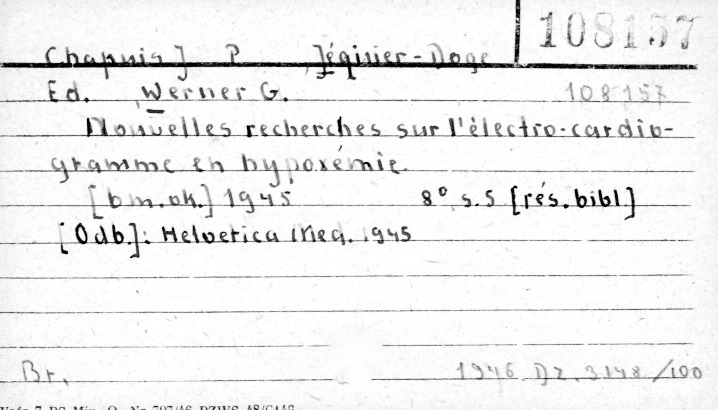 108157
Chapuis J P Jéquier-Doge
Ed. Werner G. 108157
Nouvelles recherches sur l'électro-cardio-
gramme en hypoxémie.
[bm.ok.] 1945 8° s.5 [rés.bibl]
[Odb.]: Helvetica Med. 1945
Br. 1946 Dz. 3148/100